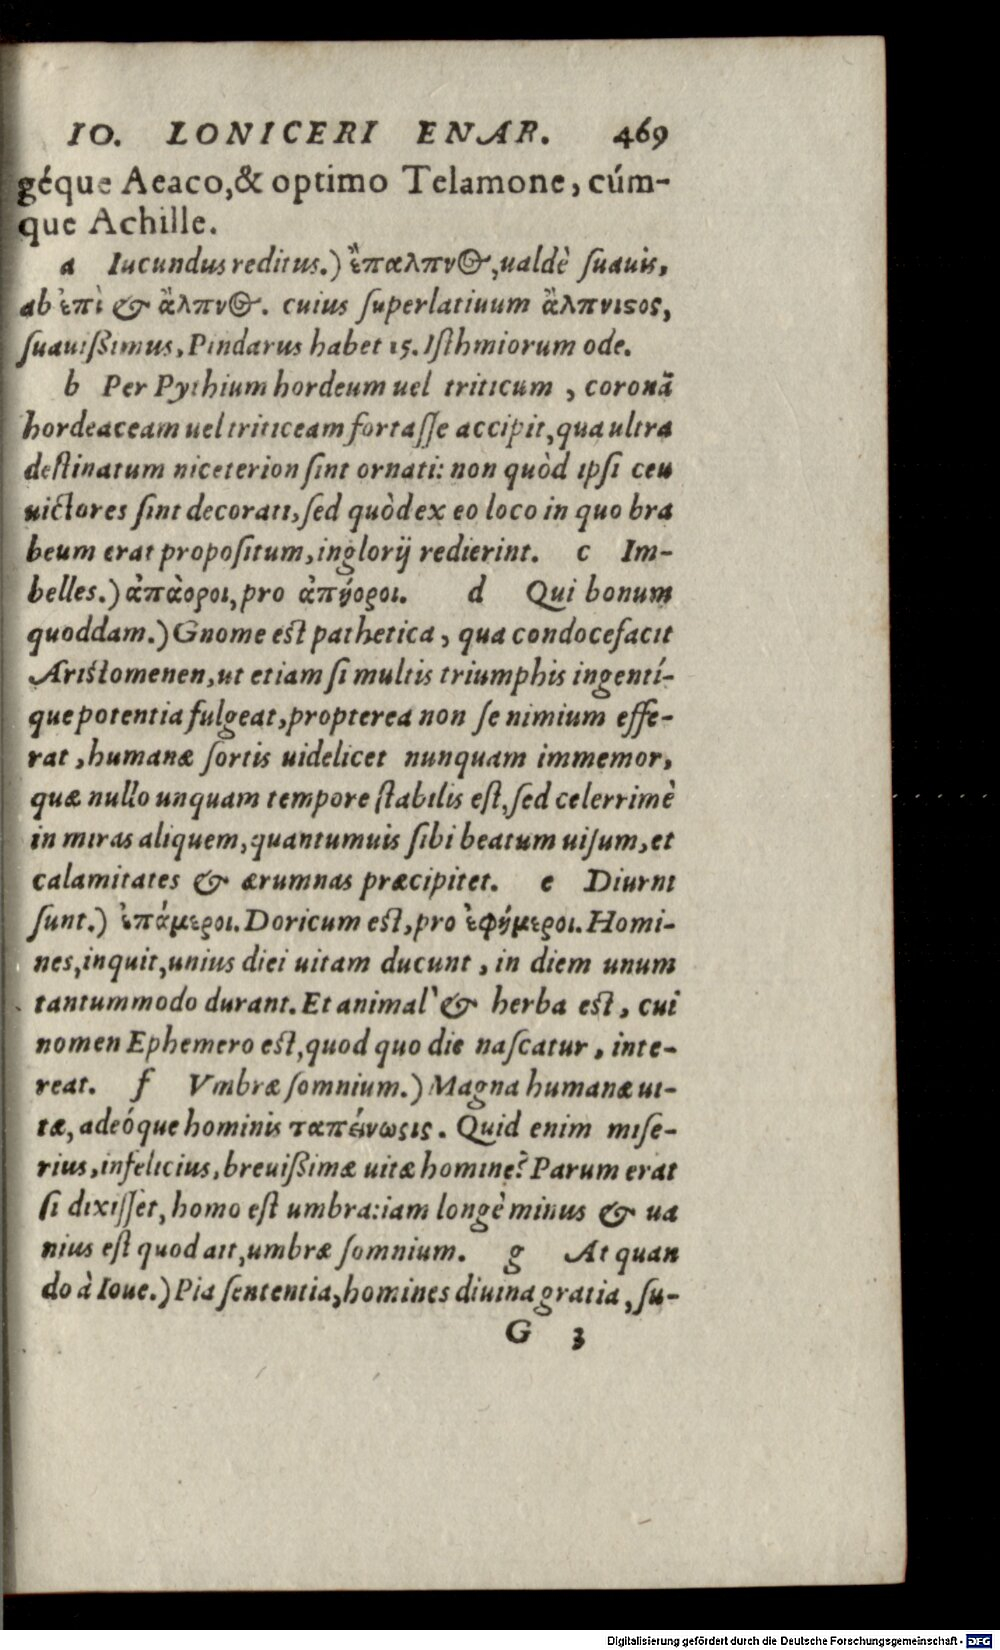 IO. LONICERI ENAR. 469
géque Aeaco, & optimo Telamone, cúm-
que Achille.
a Iucundus reditus.) ἔπαλπνος, ualdè suauis,
ab ἐπὶ & ἄλπνος. cuius superlatiuum ἄλπνιςος,
suauißimus, Pindarus habet 15. Isthmiorum ode.
b Per Pythium hordeum uel triticum, coronã
hordeaceam uel triticeam fortasse accipit, qua ultra
destinatum niceterion sint ornati: non quòd ipsi ceu
uictores sint decorati, sed quòd ex eo loco in quo bra
beum erat propositum, inglorij redierint. c Im-
belles.) ἀπάοροι, pro ἀπήοροι. d Qui bonum
quoddam.) Gnome est pathetica, qua condocefacit
Aristomenen, ut etiam si multis triumphis ingentí-
que potentia fulgeat, propterea non se nimium effe-
rat, humanæ sortis uidelicet nunquam immemor,
quæ nullo unquam tempore stabilis est, sed celerrimè
in miras aliquem, quantumuis sibi beatum uisum, et
calamitates & ærumnas præcipitet. e Diurni
sunt.) ἐπάμεροι. Doricum est, pro ἐφήμεροι. Homi-
nes, inquit, unius diei uitam ducunt, in diem unum
tantummodo durant. Et animal & herba est, cui
nomen Ephemero est, quod quo die nascatur, inte-
reat. f Vmbræ somnium.) Magna humanæ ui-
tæ, adeóque hominis ταπείνωσις. Quid enim mise-
rius, infelicius, breuißimæ uitæ homine? Parum erat
si dixisset, homo est umbra: iam longè minus & ua
nius est quod ait, umbræ somnium. g At quan
do à Ioue.) Pia sententia, homines diuina gratia, su-
G 3
Digitalisierung gefördert durch die Deutsche Forschungsgemeinschaft - DFG